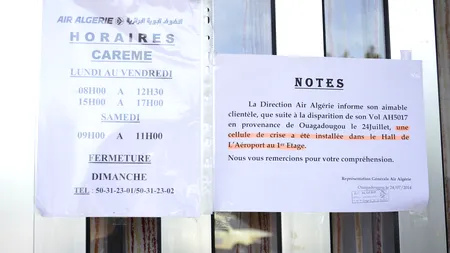 AIR ALGERIE الخطوط الجوية الجزائرية
HORAIRES
CAREME
LUNDI AU VENDREDI
08H00 A 12H30
15H00 A 17H00
SAMEDI
09H00 A 11H00
FERMETURE
DIMANCHE
TEL : 50-31-23-01/50-31-23-02
NOTES
La Direction Air Algérie informe son aimable
clientèle, que suite à la disparition de son Vol AH5017
en provenance de Ouagadougou le 24Juillet, une
cellule de crise a été installée dans le Hall de
L'Aéroport au 1er Etage.
Nous vous remercions pour votre compréhension.
Représentation Générale Air Algérie
Ouagadougou le 24/07/2014